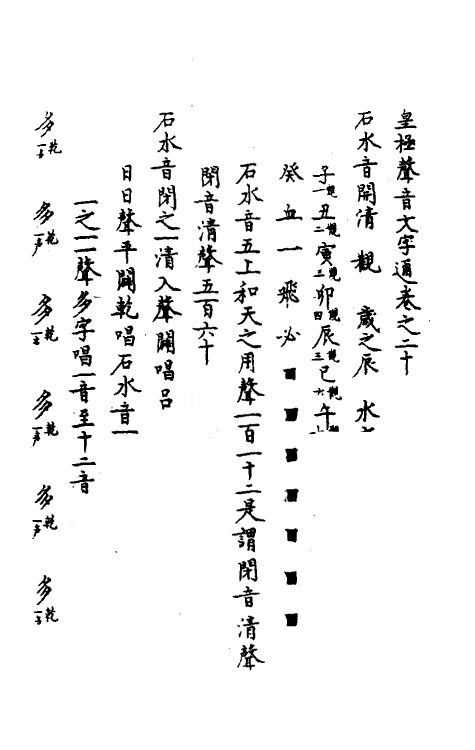 皇極聲音文字通卷之二十
石水音開清 觀 歲之辰 水
子一觀丑二觀寅三觀卯四觀辰三觀巳六觀午
癸血一飛必■■■■■■■
石水音五上和天之用聲一百一十二是謂閉音清聲
閉音清聲五百六十
石水音閉之一清入聲闢唱呂
日日聲平闢乾唱石水音一
一之一聲多字唱一音至十二音
多乾一声 多乾一声 多乾一声 多乾一声 多乾一声 多乾一声